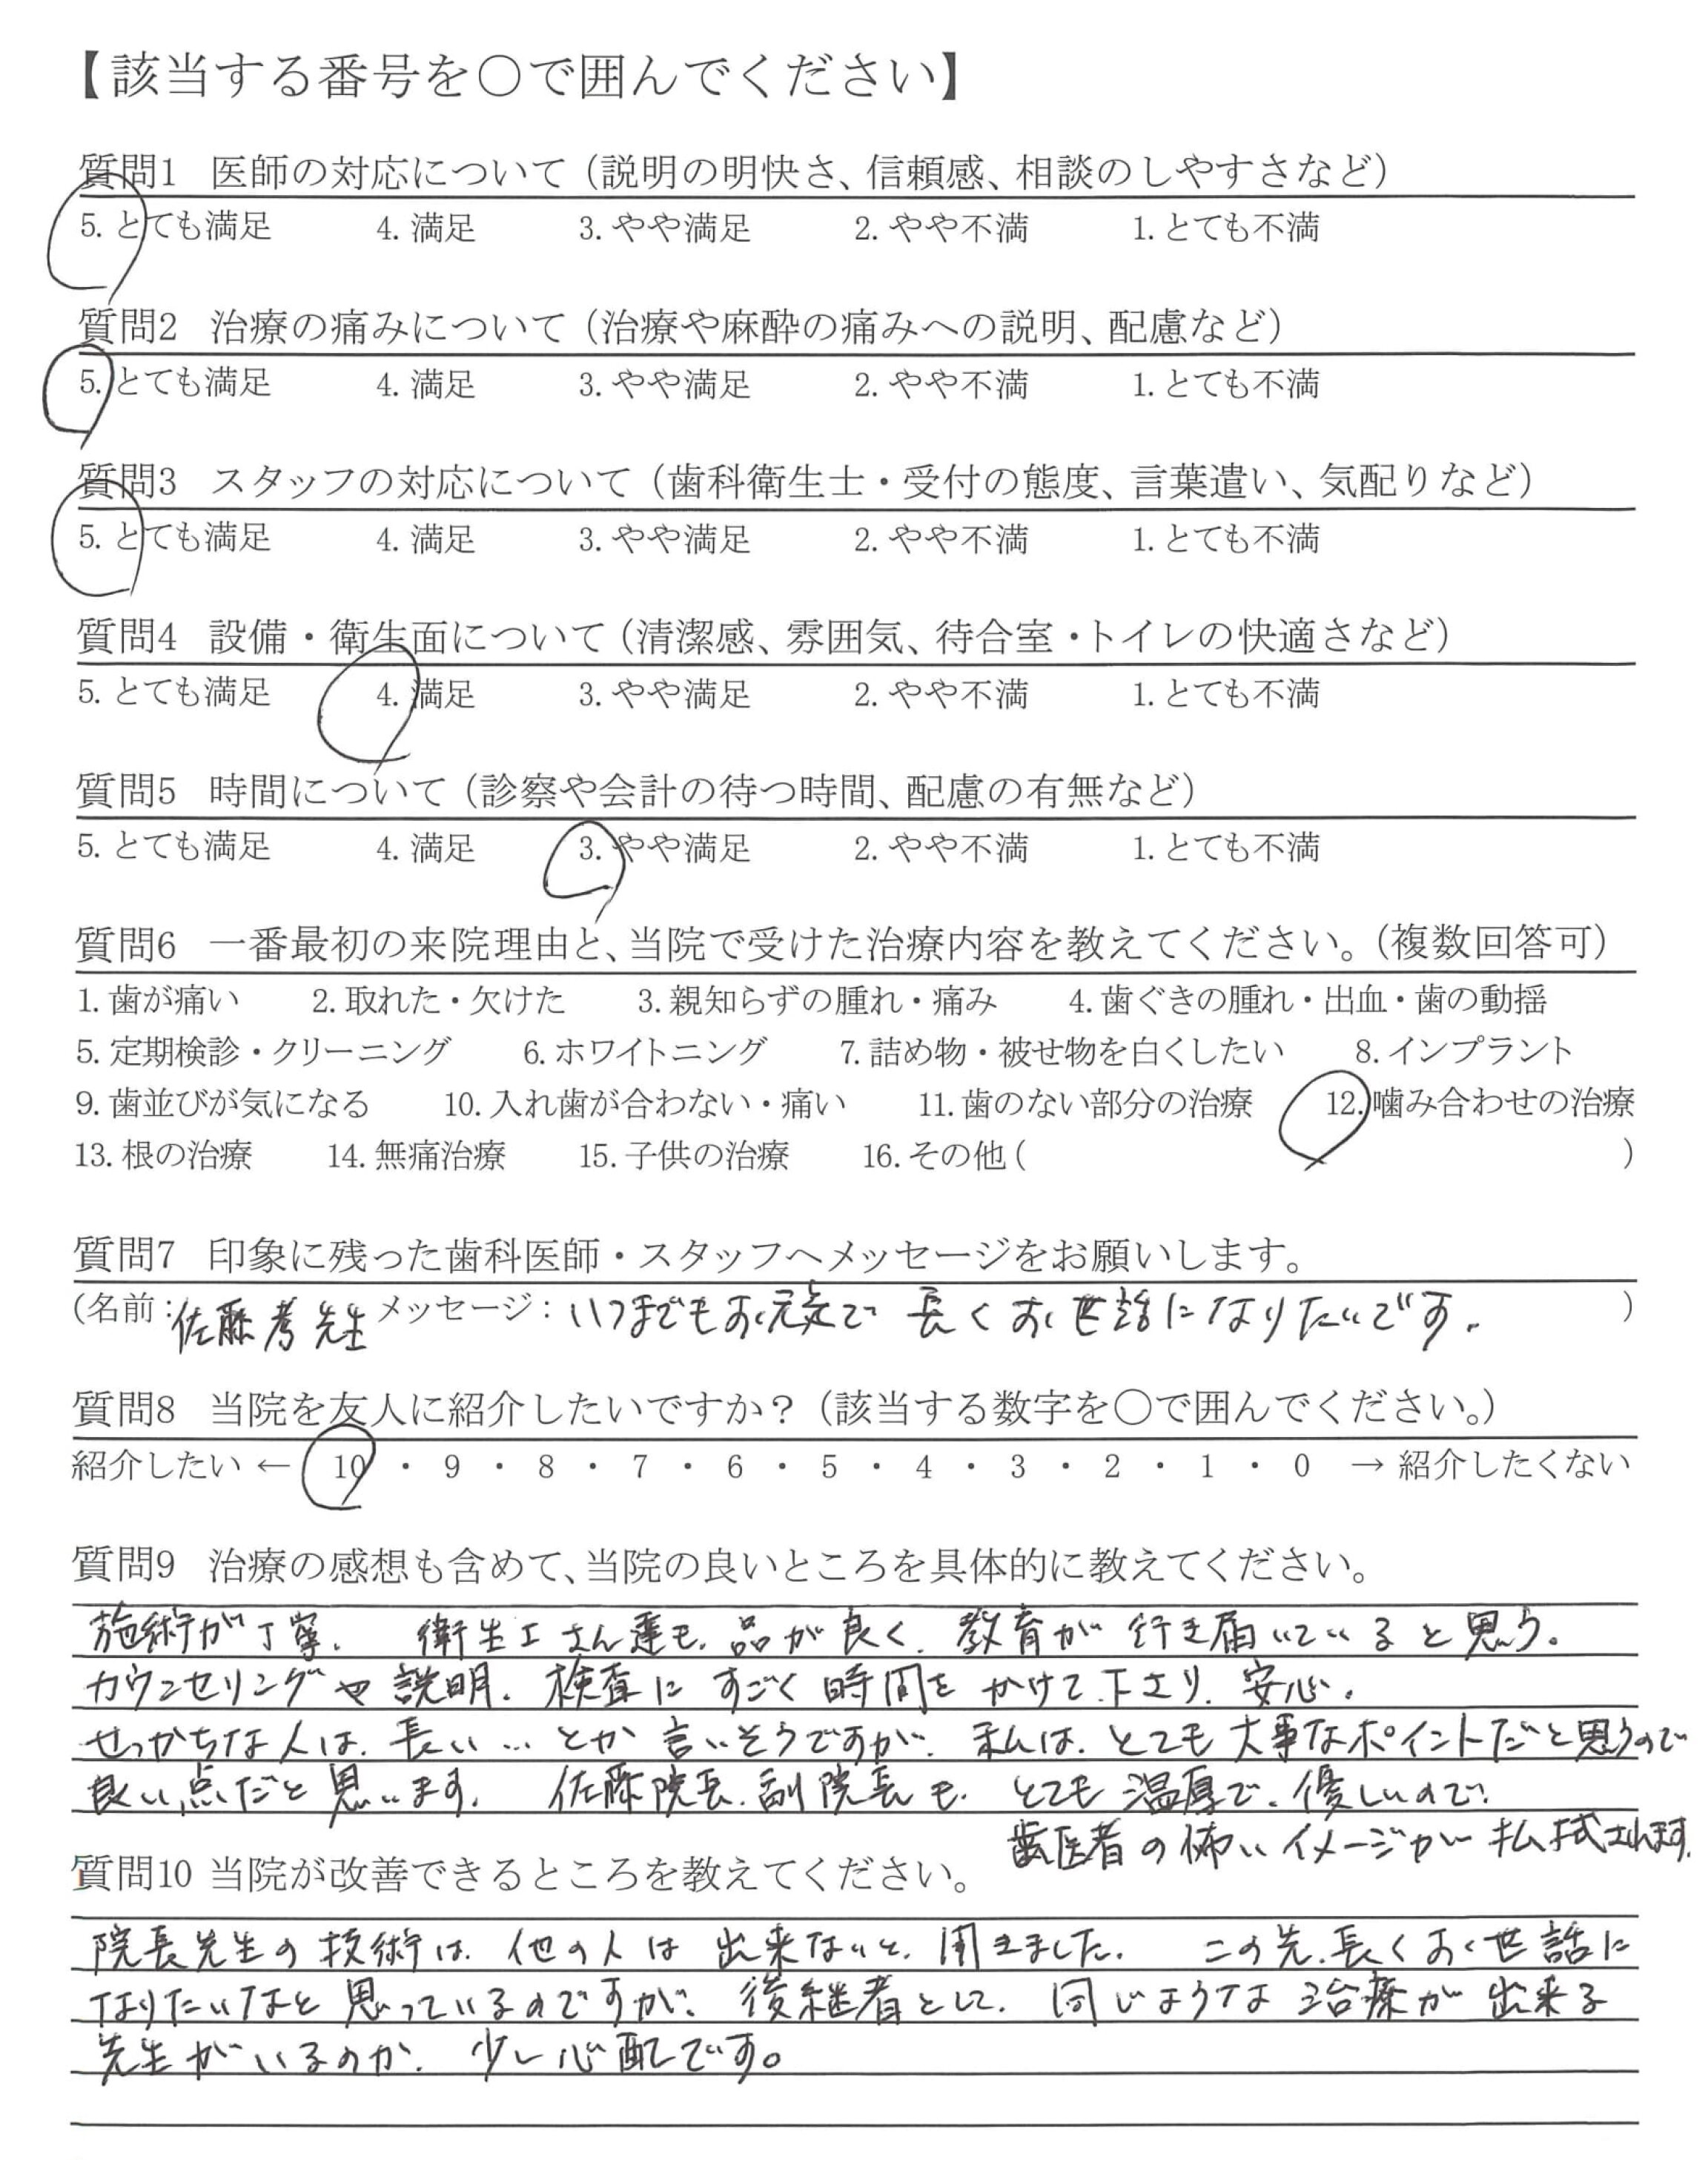 【該当する番号を〇で囲んでください】
質問1 医師の対応について（説明の明快さ、信頼感、相談のしやすさなど）
5. とても満足 4. 満足 3. やや満足 2. やや不満 1. とても不満
質問2 治療の痛みについて（治療や麻酔の痛みへの説明、配慮など）
5. とても満足 4. 満足 3. やや満足 2. やや不満 1. とても不満
質問3 スタッフの対応について（歯科衛生士・受付の態度、言葉遣い、気配りなど）
5. とても満足 4. 満足 3. やや満足 2. やや不満 1. とても不満
質問4 設備・衛生面について（清潔感、雰囲気、待合室・トイレの快適さなど）
5. とても満足 4. 満足 3. やや満足 2. やや不満 1. とても不満
質問5 時間について（診察や会計の待つ時間、配慮の有無など）
5. とても満足 4. 満足 3. やや満足 2. やや不満 1. とても不満
質問6 一番最初の来院理由と、当院で受けた治療内容を教えてください。（複数回答可）
1. 歯が痛い 2. 取れた・欠けた 3. 親知らずの腫れ・痛み 4. 歯ぐきの腫れ・出血・歯の動揺
5. 定期検診・クリーニング 6. ホワイトニング 7. 詰め物・被せ物を白くしたい 8. インプラント
9. 歯並びが気になる 10. 入れ歯が合わない・痛い 11. 歯のない部分の治療 12. 噛み合わせの治療
13. 根の治療 14. 無痛治療 15. 子供の治療 16. その他（ ）
質問7 印象に残った歯科医師・スタッフへメッセージをお願いします。
（名前：佐藤孝先生 メッセージ：いつまでもお元気で 長くお世話になりたいです。）
質問8 当院を友人に紹介したいですか？（該当する数字を〇で囲んでください。）
紹介したい ← 10 ・ 9 ・ 8 ・ 7 ・ 6 ・ 5 ・ 4 ・ 3 ・ 2 ・ 1 ・ 0 → 紹介したくない
質問9 治療の感想も含めて、当院の良いところを具体的に教えてください。
施術が丁寧。 衛生士さん達も、品が良く、教育が行き届いていると思う。
カウンセリングや説明、検査にすごく時間をかけて下さり、安心。
せっかちな人は、長い…とか言いそうですが、私は、とても大事なポイントだと思うので
良い点だと思います。 佐藤院長、副院長も、とても温厚で、優しいので、
歯医者の怖いイメージが払拭されます。
質問10 当院が改善できるところを教えてください。
院長先生の技術は、他の人は出来ないと、聞きました。 この先、長くお世話に
なりたいなと思っているのですが、後継者として、同じような治療が出来る
先生がいるのか、少し心配です。